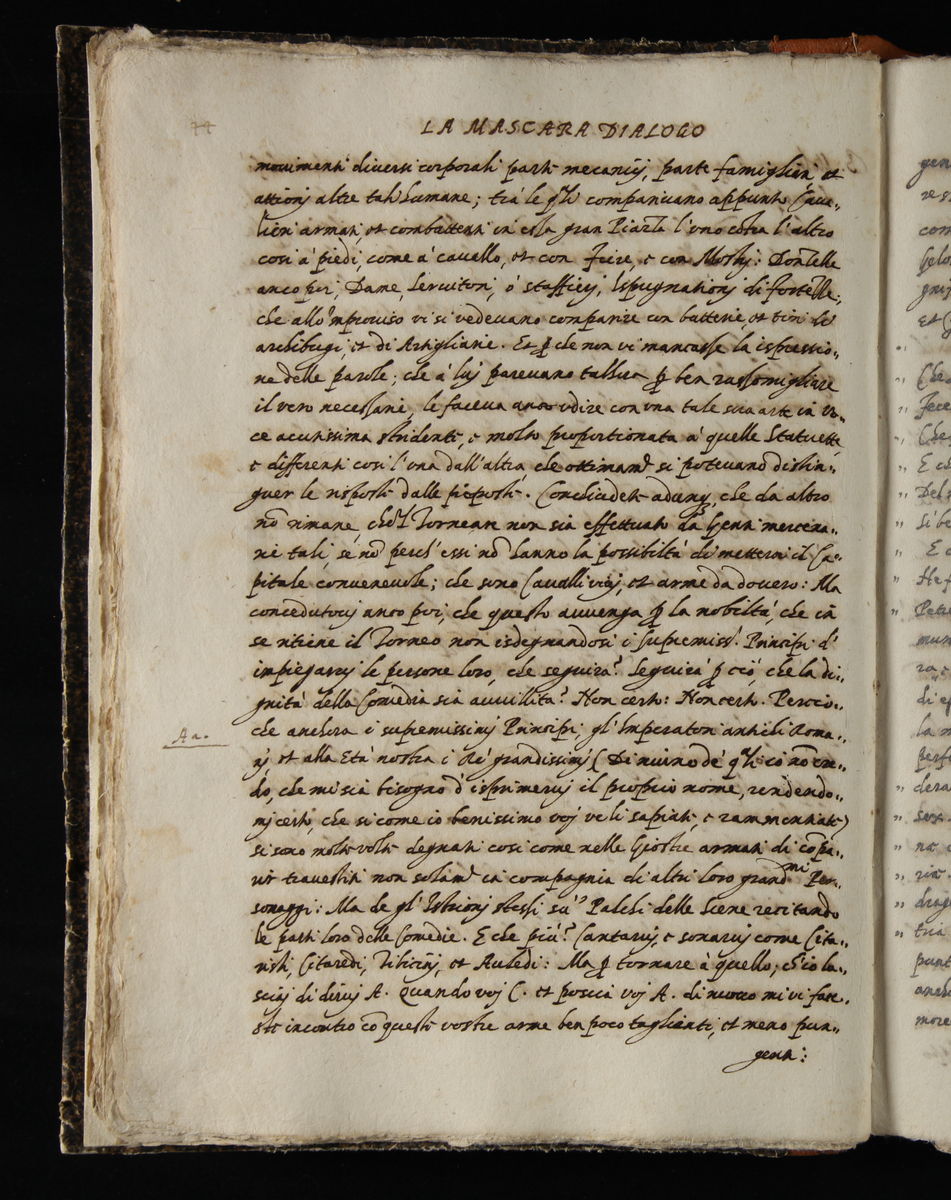 LA MASCARA DIALOGO
movimenti diversi corporali parte mecanicj, parte famigliari et
attionj altre tali humane; trà le qli comparivano appunto Cava-
lieri armati, et combattenti in essa gran Piazza l'uno cōtra l'altro
cosi à piedi, come à cavallo, et con Feire, e con Mostrj: Donzelle
anco poi, Dame, Servitori, ò staffierj, Espugnationj di fortezze,
che all'improviso vi si vedevano comparire con batterie, et tiri di
archibugi, et di Artigliarie. Et p che non vi mancasse la espressio-
ne delle parole; che à luj parevano tallhora p ben rassomigliare
il vero necessarie, le faceva anco udire con una tale sua arte in vo-
ce acutissima stridente, e molto proportionata à quelle Statuette
e differenti cosi l'una dall'altra, che ottimamte si potevano distin-
guer le risposte dalle proposte. Conchiudete adunq, che da altro
nō rimane, che'l Tornear non sia effettuato da Genti mercena-
rie tali, se nō perch'essi nō hanno la possibiltà di mettervi il Ca-
pitale convenevole; che sono Cavalli vivj, et arme da dovero: Ma
concedutovj anco poi, che questo avvenga p la nobiltà, che in
se ritiene il Torneo non isdegnandosi i supremissi Principi d'
impiegarvj le persone loro, che seguirà? Seguirà p ciò, che la di-
gnità della Comedia sia avvillita? Non certo: Non certo. Percio-
che anchora i supremissimj Principi, gl'Imperatori antichi Roma-
nj, et alla Età nostra i Rè grandissimj (Di niuno de' qli io nō cre-
do, che mi sia bisogno d'isprimervj il proprio nome, rendendo-
mj certo, che si come io benissimo voj ve li sapiate, e rammentiate)
si sono molte volte degnati cosi come nelle Giostre armati di cōpa-
rir travestiti non solamte in compagnia di altri loro grandmi Per-
sonaggi: Ma de gl'Istrionj stessi sù i Palchi delle Scene recitando
le parti loro delle Comedie. E che più? Cantarvj, e sonarvj come Cita-
risti, Citaredi, Tibicinj, et Auledi: Ma p tornare à quello, ch'io la-
sciaj di dirvj A. Quando voj C. et poscia voj A. di nuovo mi vi fate-
ste incontro cō queste vostre arme ben poco taglienti, et meno pun-
genti:
Aa.